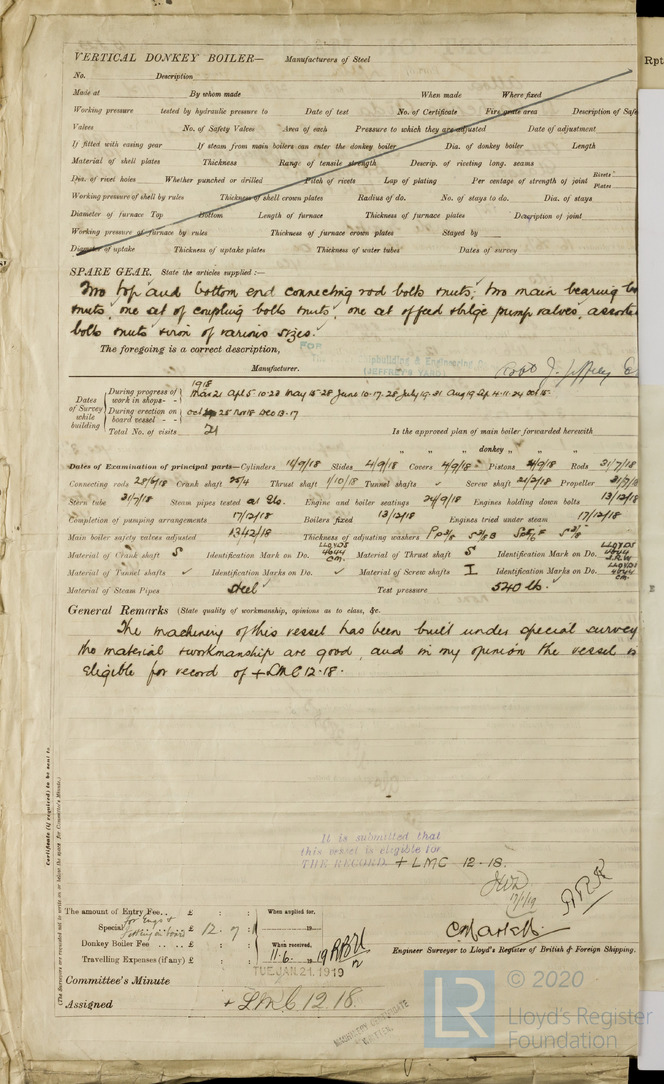 VERTICAL DONKEY BOILER— Manufacturers of Steel
No. Description
Made at By whom made When made Where fixed
Working pressure tested by hydraulic pressure to Date of test No. of Certificate Fire grate area Description of Safe
Valves No. of Safety Valves Area of each Pressure to which they are adjusted Date of adjustment
If fitted with easing gear If steam from main boilers can enter the donkey boiler Dia. of donkey boiler Length
Material of shell plates Thickness Range of tensile strength Descrip. of riveting long. seams
Dia. of rivet holes Whether punched or drilled Pitch of rivets Lap of plating Per centage of strength of joint Rivets Plates
Working pressure of shell by rules Thickness of shell crown plates Radius of do. No. of stays to do. Dia. of stays
Diameter of furnace Top Bottom Length of furnace Thickness of furnace plates Description of joint
Working pressure of furnace by rules Thickness of furnace crown plates Stayed by
Diameter of uptake Thickness of uptake plates Thickness of water tubes Dates of survey
SPARE GEAR. State the articles supplied :—
Two top and bottom end connecting rod bolts & nuts, two main bearing bo
& nuts, one set of coupling bolts & nuts, one set of feed & bilge pump valves, assorted
bolts & nuts & iron of various sizes.
The foregoing is a correct description,
FOR
Shipbuilding & Engineering
(JEFFREY'S YARD)
Robt J. Jeffrey
Manufacturer.
1918
Dates of Survey while building
During progress of work in shops - - Mar 21 Apl 5·10·23 May 15·28 June 10·17·28 July 19·31 Aug 19 Sep 4·11·24 Oct 15·
During erection on board vessel - - Oct 25 Nov 18 Dec 13·17
Total No. of visits 21 Is the approved plan of main boiler forwarded herewith
" " donkey " " "
Dates of Examination of principal parts—Cylinders 11/9/18 Slides 4/9/18 Covers 4/9/18 Pistons 4/9/18 Rods 31/7/18
Connecting rods 28/6/18 Crank shaft 23/4 Thrust shaft 1/10/18 Tunnel shafts ✓ Screw shaft Propeller 31/7/18
Stern tube 31/7/18 Steam pipes tested Engine and boiler seatings 24/9/18 Engines holding down bolts 13/12/18
Completion of pumping arrangements 17/12/18 Boilers fixed 13/12/18 Engines tried under steam 17/12/18
Main boiler safety valves adjusted Thickness of adjusting washers
Material of Crank shaft S Identification Mark on Do. LLOYDS 4644 CM. Material of Thrust shaft S Identification Mark on Do. LLOYDS 4644 J.R.W
Material of Tunnel shafts ✓ Identification Marks on Do. ✓ Material of Screw shafts I Identification Marks on Do. LLOYDS 4644 CM.
Material of Steam Pipes Steel Test pressure 540 lb.
General Remarks (State quality of workmanship, opinions as to class, &c.
The machinery of this vessel has been built under special survey
the material & workmanship are good, and in my opinion the vessel is
eligible for record of + LMC 12·18.
Certificate (if required) to be sent to
(The Surveyors are requested not to write on or below the space for Committee's Minute.)
It is submitted that
this vessel is eligible for
THE RECORD + LMC 12·18.
JWD
17/1/19
ARR
The amount of Entry Fee . . £ : : When applied for,
Special £ 12 . 7 : 19
Donkey Boiler Fee . . . . £ : : When received,
Travelling Expenses (if any) £ : : 11.6. 19
Engineer Surveyor to Lloyd's Register of British & Foreign Shipping.
TUE. JAN. 21. 1919
Committee's Minute
Assigned + LMC 12.18.
MACHINERY CERTIFICATE
WRITTEN.
Rpt
LR
© 2020
Lloyd's Register
Foundation